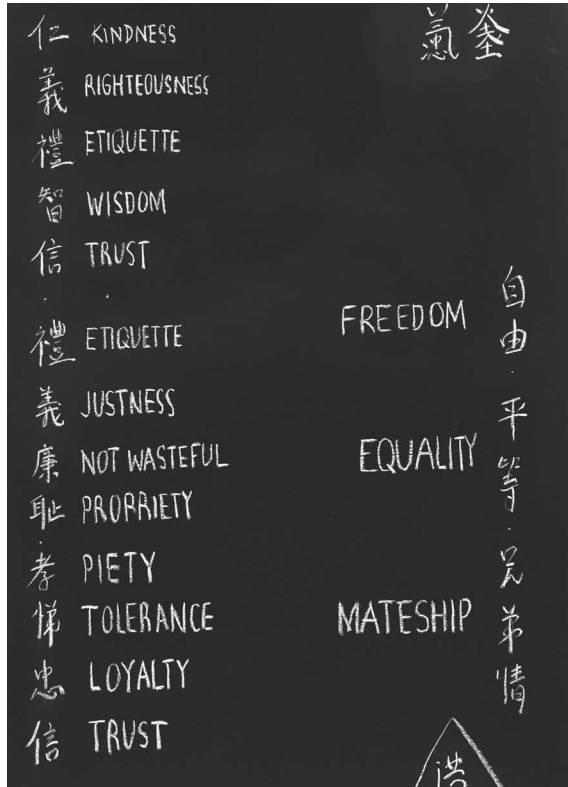 仁 KINDNESS
義 RIGHTEOUSNESS
禮 ETIQUETTE
智 WISDOM
信 TRUST
· ·
禮 ETIQUETTE
義 JUSTNESS
廉 NOT WASTEFUL
耻 PROPRIETY
·
孝 PIETY
悌 TOLERANCE
忠 LOYALTY
信 TRUST
FREEDOM
EQUALITY
MATESHIP
自由·平等·兄弟情